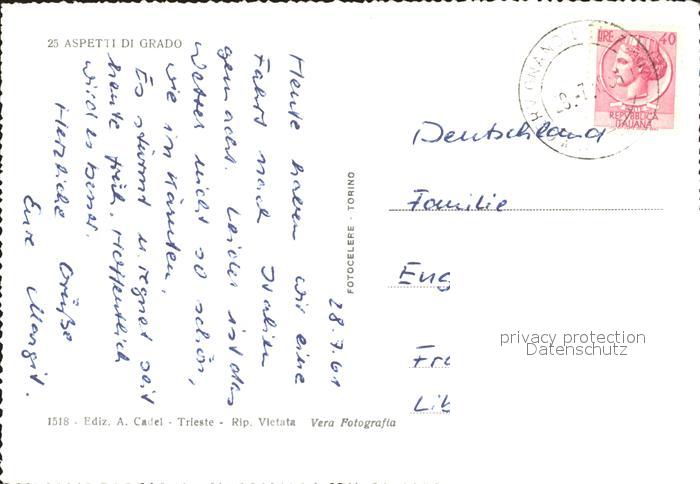 25 ASPETTI DI GRADO
28.7.61
Heute haben wir eine
Fahrt nach Italien
gemacht. Leider ist das
Wetter nicht so schön,
wie in Kärnten.
Es stürmt u. regnet seit
heute früh, hoffentlich
wird es besser.
Herzliche Grüße
Eure Margit.
FOTOCELERE - TORINO
LIRE 40
REPVBBLICA
ITALIANA
Deutschland
Familie
Eug
Fr
Lit
privacy protection
Datenschutz
1518 - Ediz. A. Cadel - Trieste - Rip. Vietata Vera Fotografia